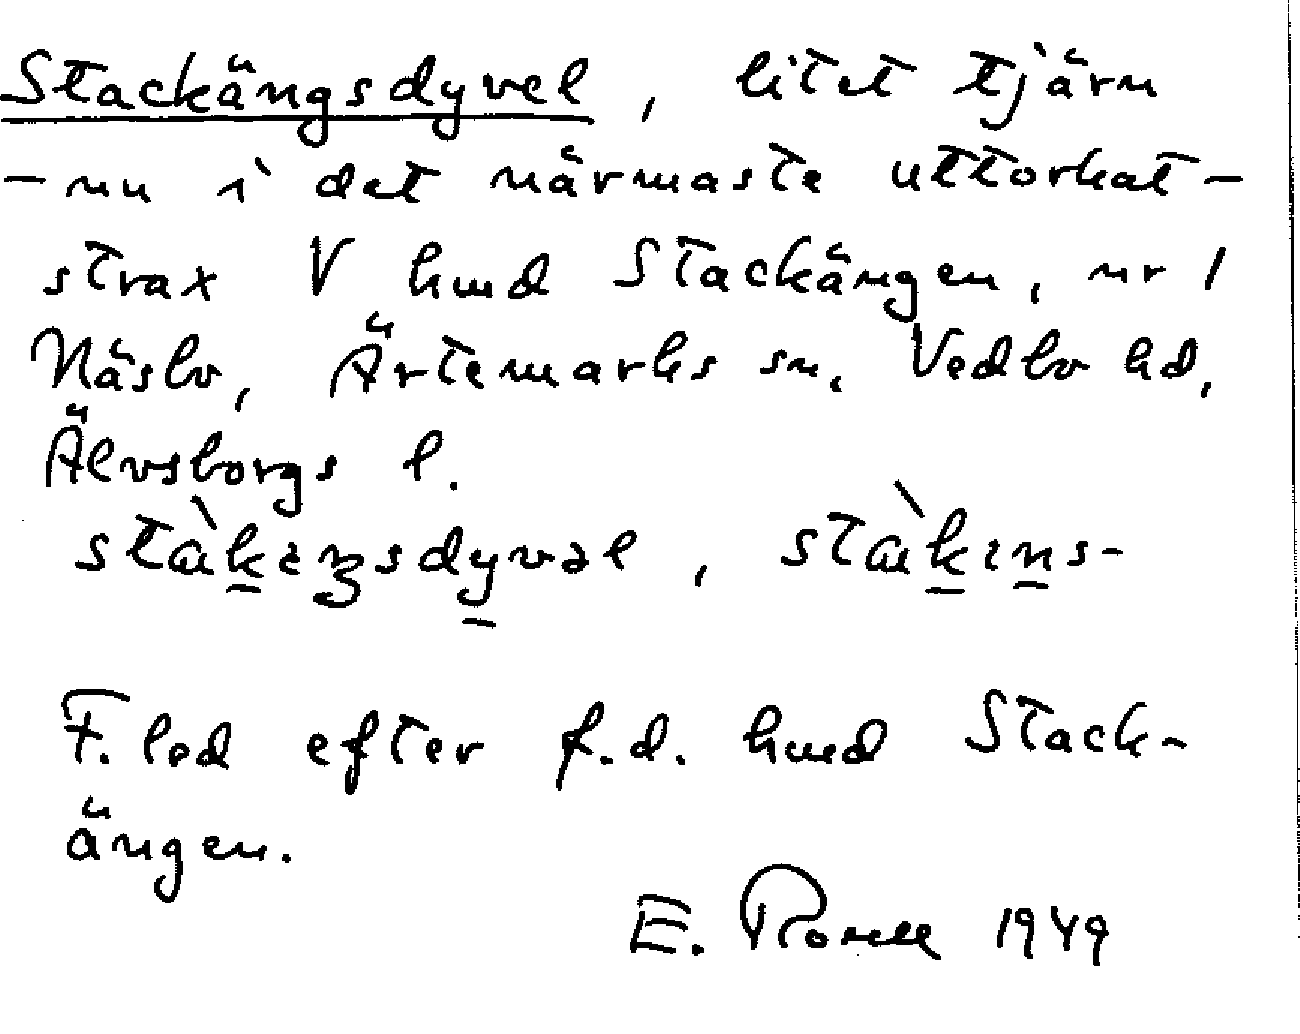 Stackängsdyvel, litet tjärn
- nu i det närmaste uttorkat -
strax V hmd Stackängen, nr 1
Näsbo, Ärtemarks sn, Vedbo hd,
Älvsborgs l.
stàkɩŋsdyvəl, stàkɩns-
F. led efter f.d. hmd Stack-
ängen.
E. Rosell 1949